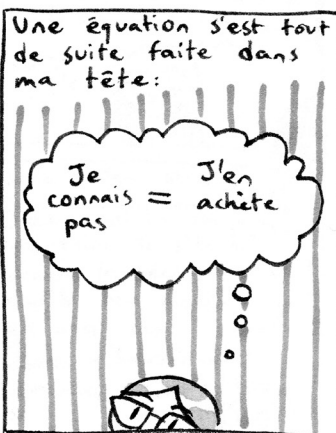 Une équation s'est tout
de suite faite dans
ma tête:
Je
connais
pas
=
J'en
achète